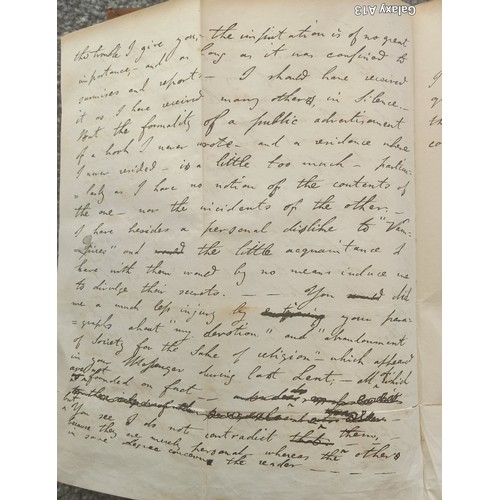 the trouble I give you, – the imputation is of no great
importance, – and as long as it was confined to
surmises and reports – I should have received
it as I have received many others, in Silence. –
But the formality of a public advertisement
of a book I never wrote – and a residence where
I never resided – is a little too much – particu-
-larly as I have no notion of the contents of
the one – nor the incidents of the other. –
I have besides a personal dislike to "Vam-
-pires" and the little acquaintance I
have with them would by no means induce me
to divulge their secrets. – – You did
me a much less injury by your para-
-graphs about "my devotion" and "abandonment
of Society for the Sake of religion" – which appeared
in your Messenger during last Lent; – all which
are not founded on fact –
but
You see I do not contradict them, –
because they are merely personal, whereas the others
in some degree concern the reader – – –
Galaxy A13